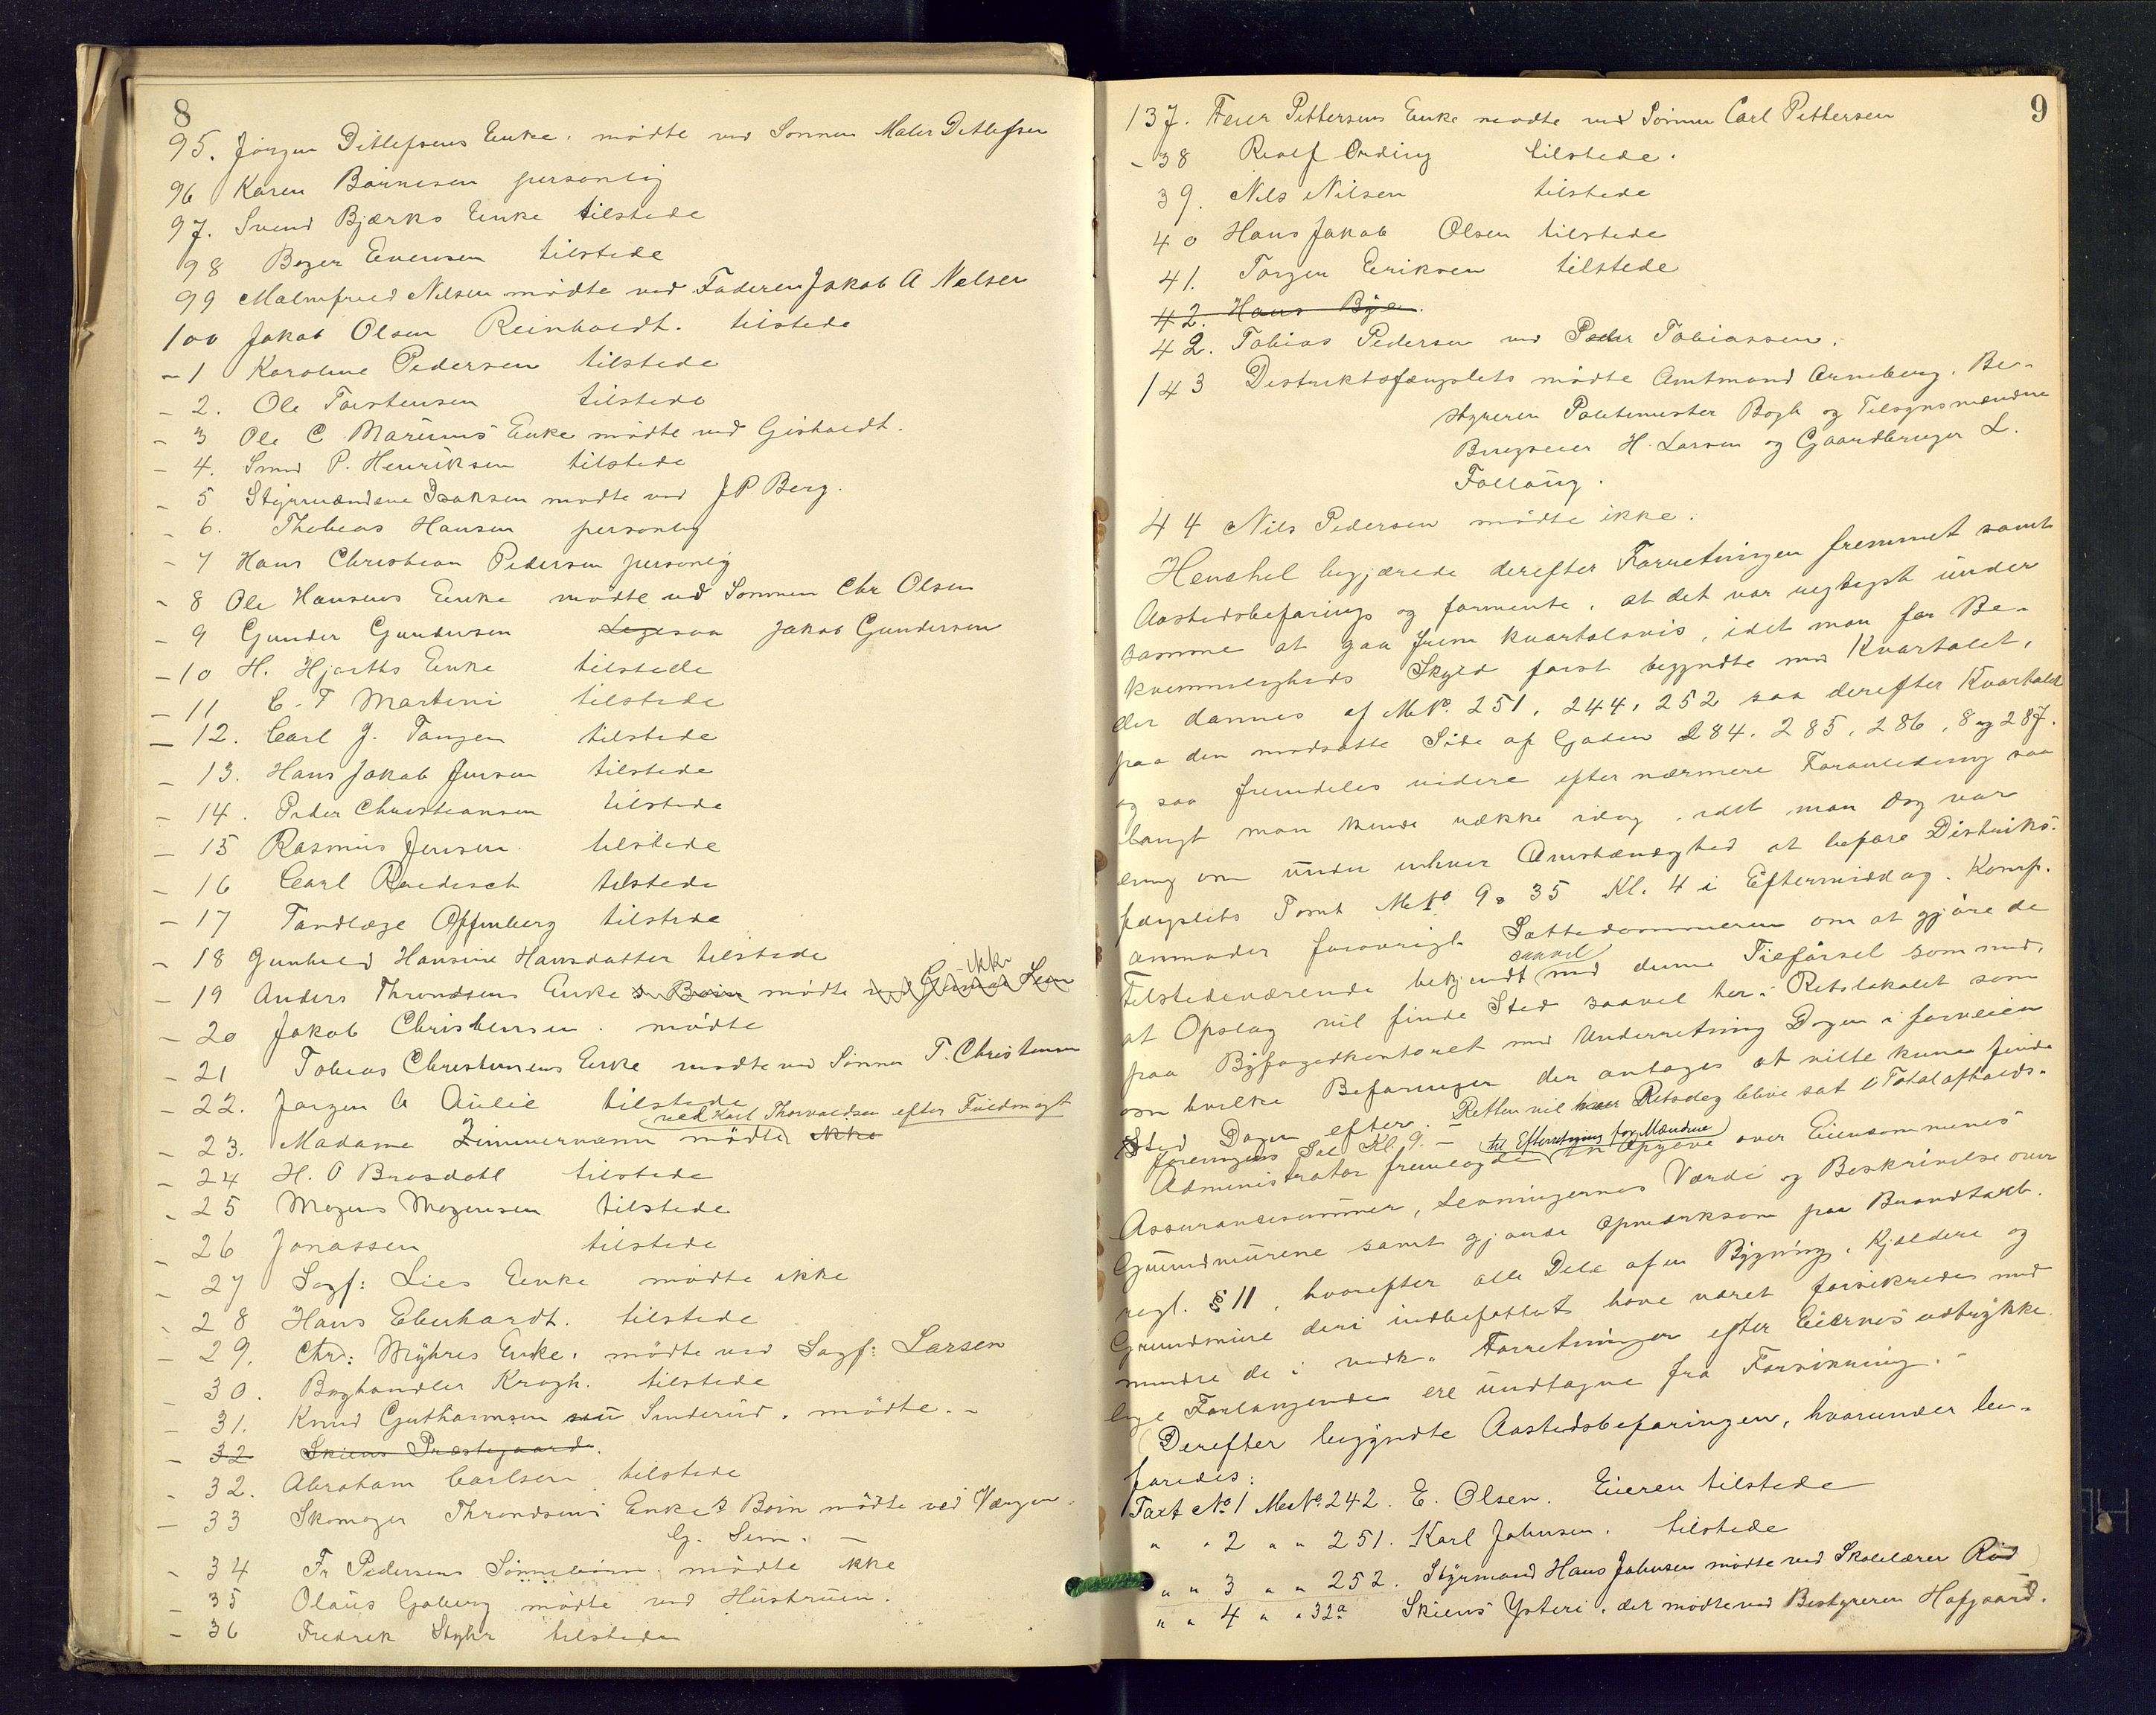 8
95. Jörgen Ditlefsens Enke. mödte ved Sönnen Maler Ditlefsen
96 Karen Börnesen personlig
97. Svend Bjærks Enke tilstede
98 Bager Evensen tilstede
99 Malmfred Nilsen mödte ved Faderen Jakob A Nilsen
100 Jakob Olsen Reinholdt. tilstede
- 1 Karoline Pedersen tilstede
- 2. Ole Torstensen tilstede
- 3 Ole C Marinius Enke mödte ved Gisholdt.
- 4. Smed P. Henriksen tilstede
- 5 Styrmændene Isaksen mödte ved J P. Berg.
- 6. Thobias Hansen personlig
- 7 Hans Christian Pedersen personlig
- 8 Ole Hansens Enke mödte ved Sönnen Chr Olsen
- 9 Gunder Gundersen Jakob Gundersen
- 10 H. Hjorths Enke tilstede
- 11 C. F Martini tilstede
- 12. Carl J. Tangen tilstede
- 13. Hans Jakob Jensen tilstede
- 14. Peder Christiansen tilstede
- 15 Rasmus Jensen tilstede
- 16 Carl Roedisch tilstede
- 17 Tandlæge Offenberg tilstede
- 18 Gunhild Hansine Hansdatter tilstede
- 19 Anders Throndsens Enke & Börn mödte ikke
- 20 Jakob Christensen. mödte
- 21 Tobias Christensens Enke mödte ved Sönnen T. Christensen
- 22. Jörgen A Aulie tilstede
- 23. Madame Zimmermann mödte ikke ved Karl Thorvaldsen efter Fuldmagt
- 24 H. O Brosdahl tilstede
- 25 Mogens Mogensen tilstede
- 26 Jonassen tilstede
- 27 Sagf: Lies Enke mödte ikke
- 28 Hans Eberhardt. tilstede
- 29. Chr: Myhres Enke. mödte ved Sagf: Larsen
- 30. Boghandler Krogh. tilstede
- 31. Knud Guthormsen Sinderud. mödte. -
- 32 Skiens Præstegaard.
- 32. Abraham Carlsen tilstede
- 33 Skomager Throndsens Enkes Börn mödte ved Værgen
G. Sem. -
- 34 Fr Pedersens Sönnebörn. mödte ikke
- 35 Olaus Goberg mödte ved Hustruen.
- 36 Fredrik Styhr tilstede
9
137. Feier Pettersens Enke mödte ved Sönnen Carl Pettersen
- 38 Rolf Ording tilstede.
39. Nils Nilsen tilstede
40 Hans Jakob Olsen tilstede
41. Jörgen Eriksen tilstede
42. Hans Bye.
42. Tobias Pedersen ved Peder Tobiassen.
143 Distriktsfængslets mödte Amtmand Arneberg. Be-
styreren Politimester Bogh og Tilsynsmændene
Brugseier H. Larsen og Gaardbruger L.
Folloug.
44 Nils Pedersen mödte ikke.
Henschel begjærede derefter Forretningen fremmet samt
Aastedsbefaring og formente, at det var rigtigst under
samme at gaa frem kvartalsvis, idet man for Be-
kvemmeligheds Skyld först begyndte med Kvartalet,
der dannes af M.No. 251, 244, 252 saa derefter Kvartalet
paa den modsatte Side af Gaden 284. 285, 286, 8 og 287.
og saa fremdeles videre efter nærmere Foranledning saa
langt man kunde række idag, idet man dog var
enig om under enhver Omstændighed at befare Distrikts-
fængslets Tomt M No 9 & 35 Kl. 4 i Eftermiddag. Komp.
anmoder forövrigt Rettedommeren om at gjöre de
Tilstedeværende bekjendt med denne Tilförsel samt med,
at Opslag vil finde Sted saavel her i Retslokalet som
paa Byfogedkontoret med Underretning Dagen i forveien
om hvilke Befaringer der antages at ville kunne finde
Sted Dagen efter. - Retten vil hver Retsdag blive sat i Totalafholds-
foreningens Sal Kl. 9. -
Administrator fremlagde til Efterretning for Mændene en Opgave over Eiendommenes
Assurancesummer, Levningernes Værdi og Beskrivelse over
Grundmurene samt gjorde opmærksom paa Brandtaxt.
regl. § 11, hvorefter alle Dele af en Bygning, Kjældere og
Grundmure deri indbefattet have været forsikrede med
mindre de i vedk. Forretninger efter Eiernes udtrykke-
lige Forlangende ere undtagne fra Forsikring. -
Derefter begyndte Aastedsbefaringen, hvorunder be-
faredes:
Taxt No. 1 M No. 242. E. Olsen. Eieren tilstede
" " 2 " " 251. Karl Johnsen. tilstede
" " 3 " " 252. Styrmand Hans Johnsen mödte ved Skolelærer Röd
" " 4 " " 32a Skiens Ysteri, der mödte ved Bestyreren Hofgaard.